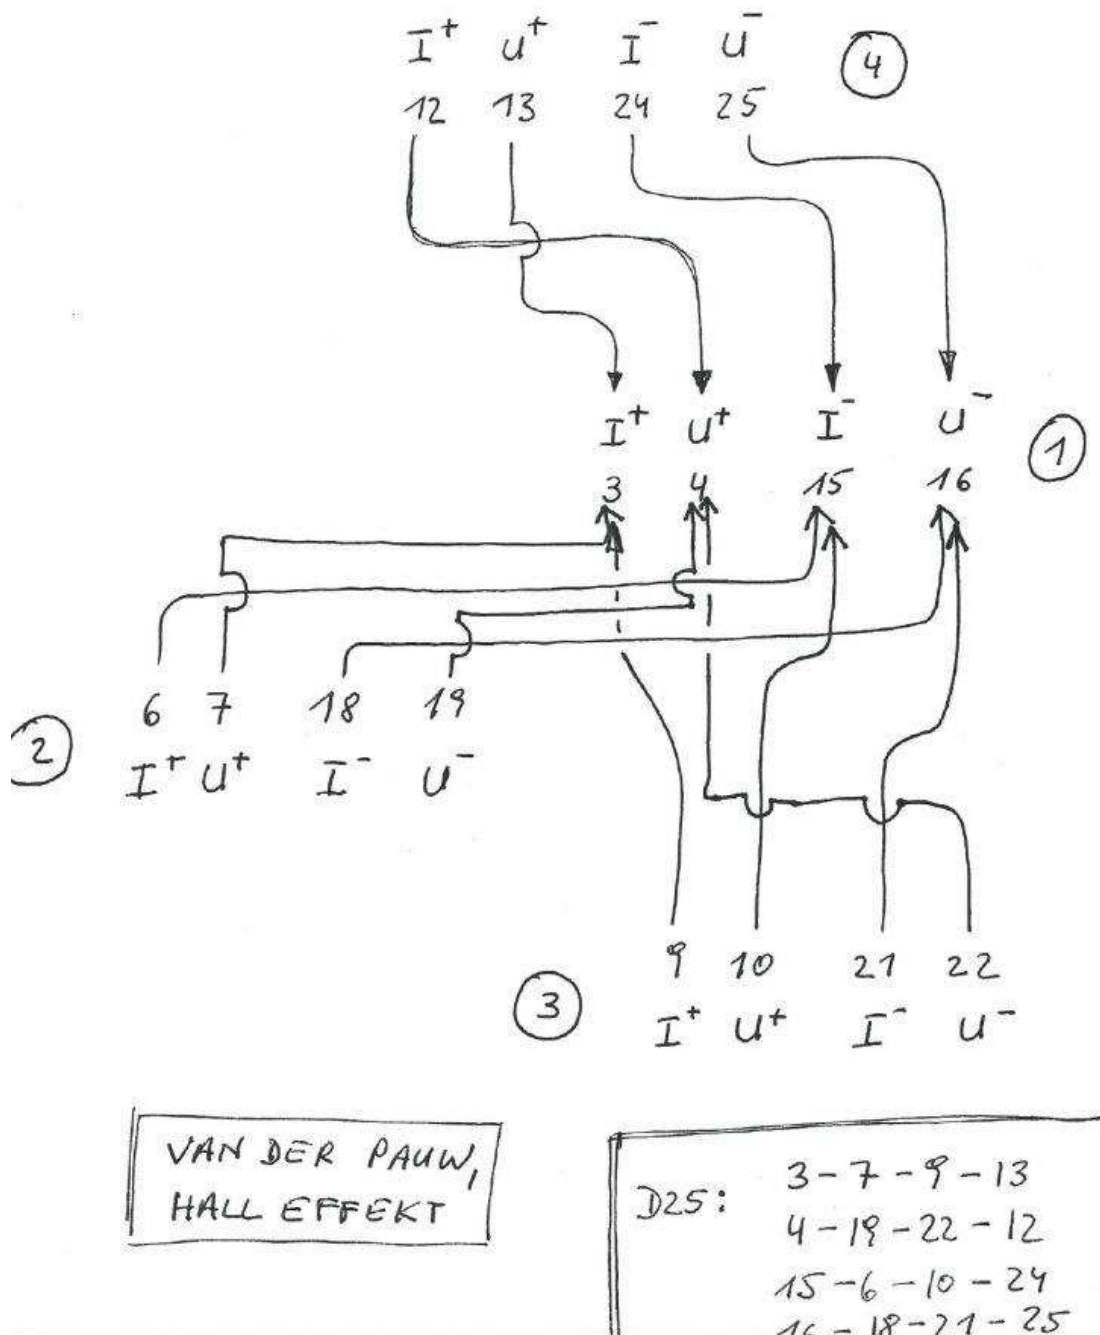 I⁺ U⁺ I⁻ U⁻ ④
12 13 24 25
I⁺ U⁺ I⁻ U⁻ ①
3 4 15 16
6 7 18 19
② I⁺ U⁺ I⁻ U⁻
9 10 21 22
③ I⁺ U⁺ I⁻ U⁻
VAN DER PAUW,
HALL EFFEKT
D25: 3-7-9-13
4-19-22-12
15-6-10-24
16-18-21-25